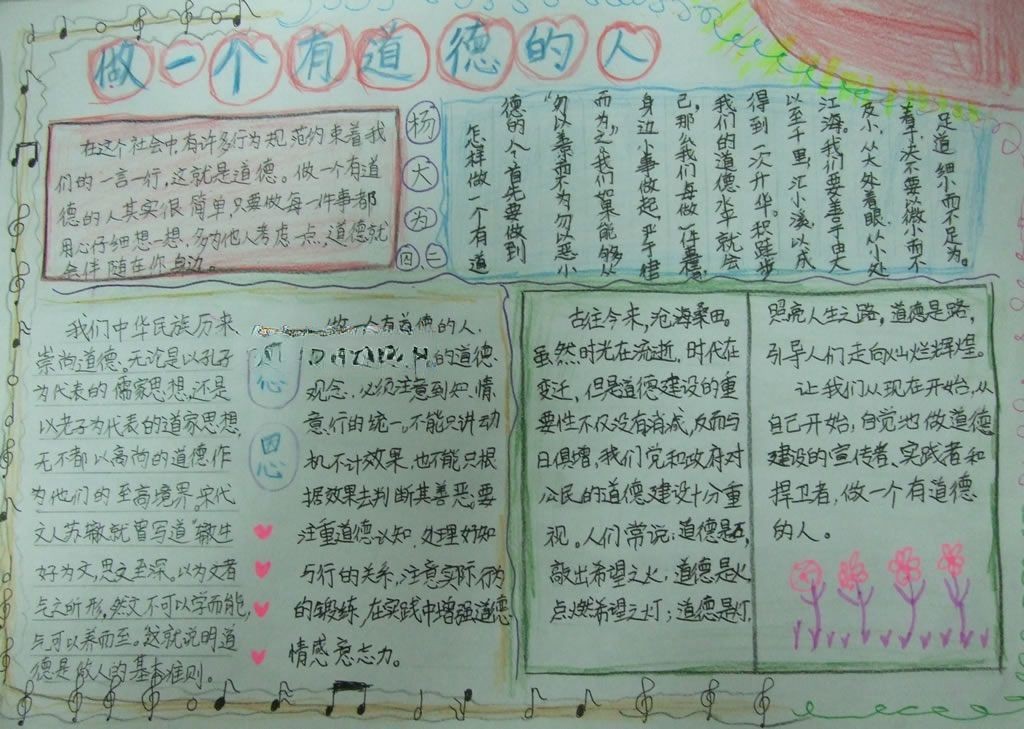 做一个有道德的人
在这个社会中,有许多行为规范约束着我
们的一言一行,这就是道德。做一个有道
德的人其实很简单,只要做每一件事都
用心仔细想一想,多为他人考虑一点,道德就
会伴随在你身边。
杨大为
四、二
怎样做一个有道
德的个首先要做到
“勿以善而不为勿以恶小
而为之”我们如果能够从
身边小事做起,严于律
己。那么我们每做一件善事,
我们的道德水平就会
得到一次升华。积跬步
以至千里,汇小溪以成
江海。我们要善于由大
及小,从大处着眼,从小处
着手,决不要以微小而不
足道 细小而不足为。
我们中华民族历来
崇尚道德。无论是以孔子
为代表的儒家思想,还是
以老子为代表的道家思想,
无不都以高尚的道德作
为他们的至高境界。宋代
文人苏辙就曾写道“辙生
好为文,思之至深。以为文者
气之所形,然文不可以学而能,
气可以养而至。这就说明道
德是做人的基本准则。
心
思
做一个有道德的人,
的道德
观念,必须注意到知、情、
意、行的统一。不能只讲动
机不计效果,也不能只根
据效果去判断其善恶。要
注重道德认知,处理好知
与行的关系,注意实际行为
的锻练,在实践中增强道德
情感意志力。
古往今来,沧海桑田。
虽然时光在流逝,时代在
变迁,但是道德建设的重
要性不仅没有消减,反而与
日俱增,我们党和政府对
公民的道德建设十分重
视。人们常说:道德是石,
敲出希望之火,道德是火,
点燃希望之灯;道德是灯,
照亮人生之路,道德是路,
引导人们走向灿烂辉煌。
让我们从现在开始,从
自己开始,自觉地做道德
建设的宣传者、实践者和
捍卫者,做一个有道德
的人。